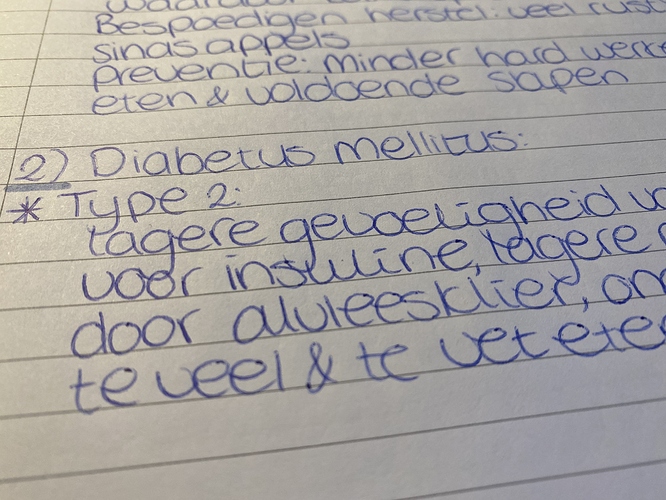 Bespoedigen herstel: veel rust
sinasappels
preventie: minder hard werke
eten & voldoende slapen
2) Diabetus mellitus:
* Type 2:
lagere gevoeligheid v
voor insuline, lagere
door alvleesklier, on
te veel & te vet ete